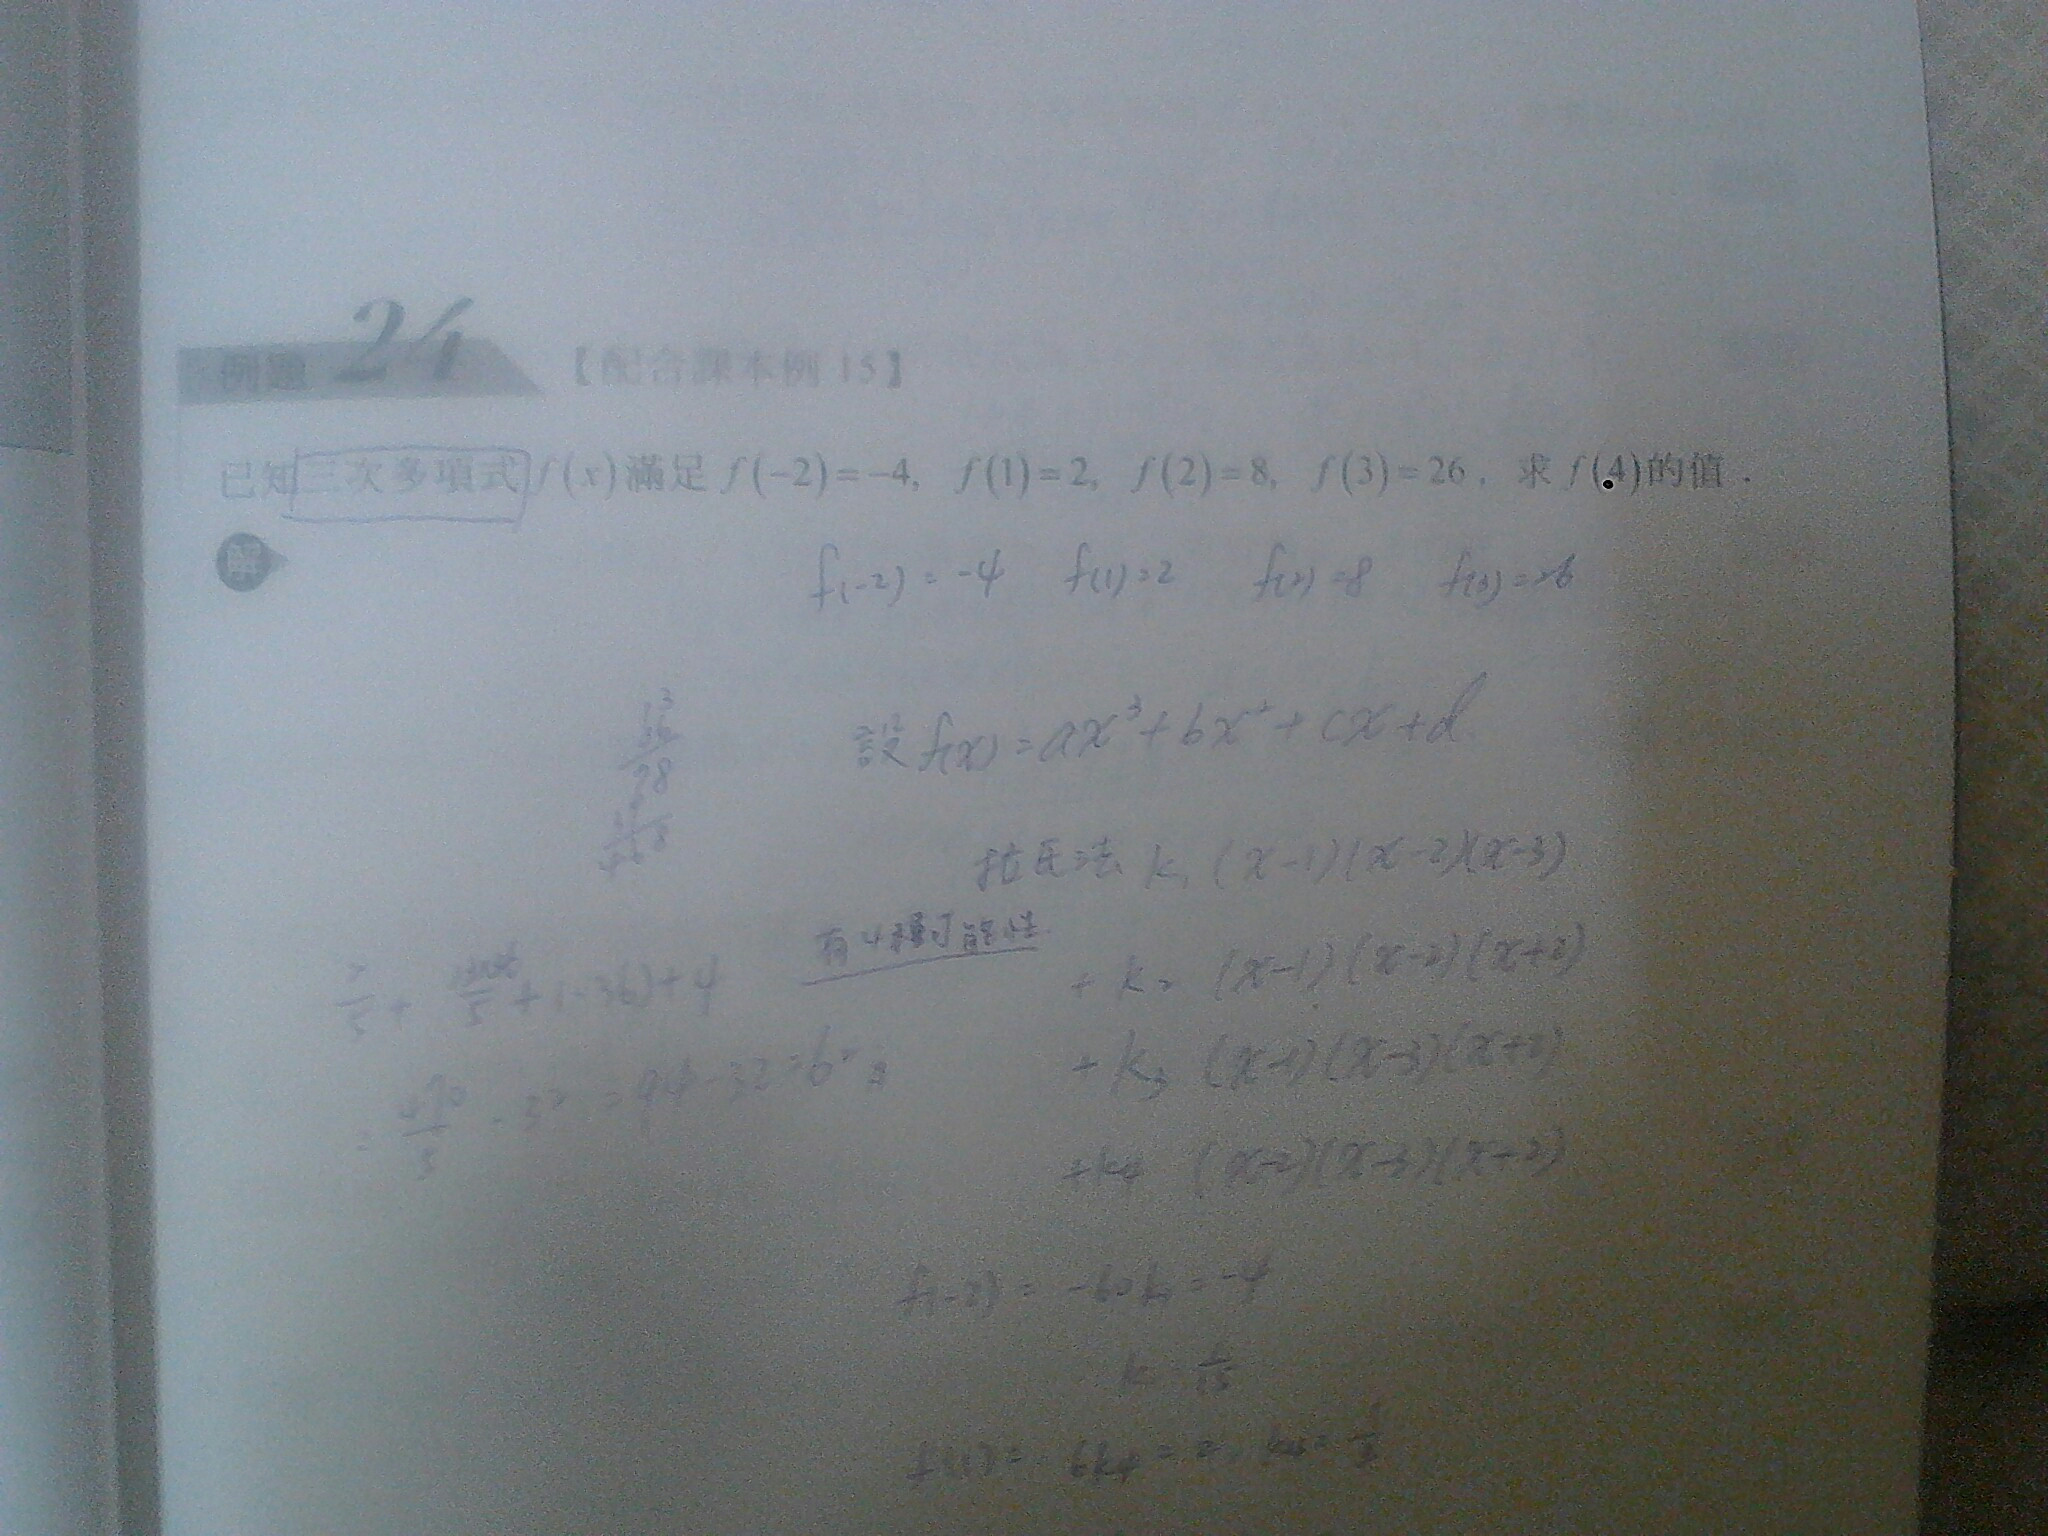 例題 24 【配合課本例 15】
已知三次多項式 f(x) 滿足 f(-2)=-4, f(1)=2, f(2)=8, f(3)=26, 求 f(4) 的值.
解
f(-2)=-4 f(1)=2 f(2)=8 f(3)=26
設 f(x)=ax³+bx²+cx+d
拉氏法 k₁(x-1)(x-2)(x-3)
有4種可能性
+k₂(x-1)(x-2)(x+2)
+k₃(x-1)(x-3)(x+2)
+k4(x-2)(x-3)(x+2)
+(-36)+4
=94-32=62
f(-2)=-60k₁=-4
f(1)=6k4=2